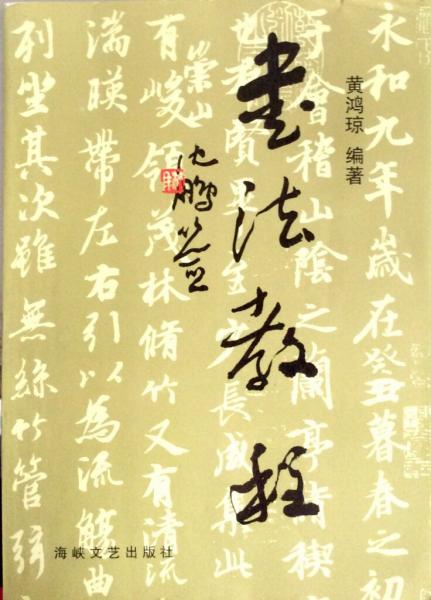 黄鸿琼 编著
書法教程
沈鹏签
海峡文艺出版社
永和九年歲在癸丑暮春之初
于會稽山陰之蘭亭脩禊
也羣賢畢至少長咸集此
地有崇山峻領茂林脩竹又有清流
湍暎帶左右引以為流觴曲
列坐其次雖無絲竹管弦